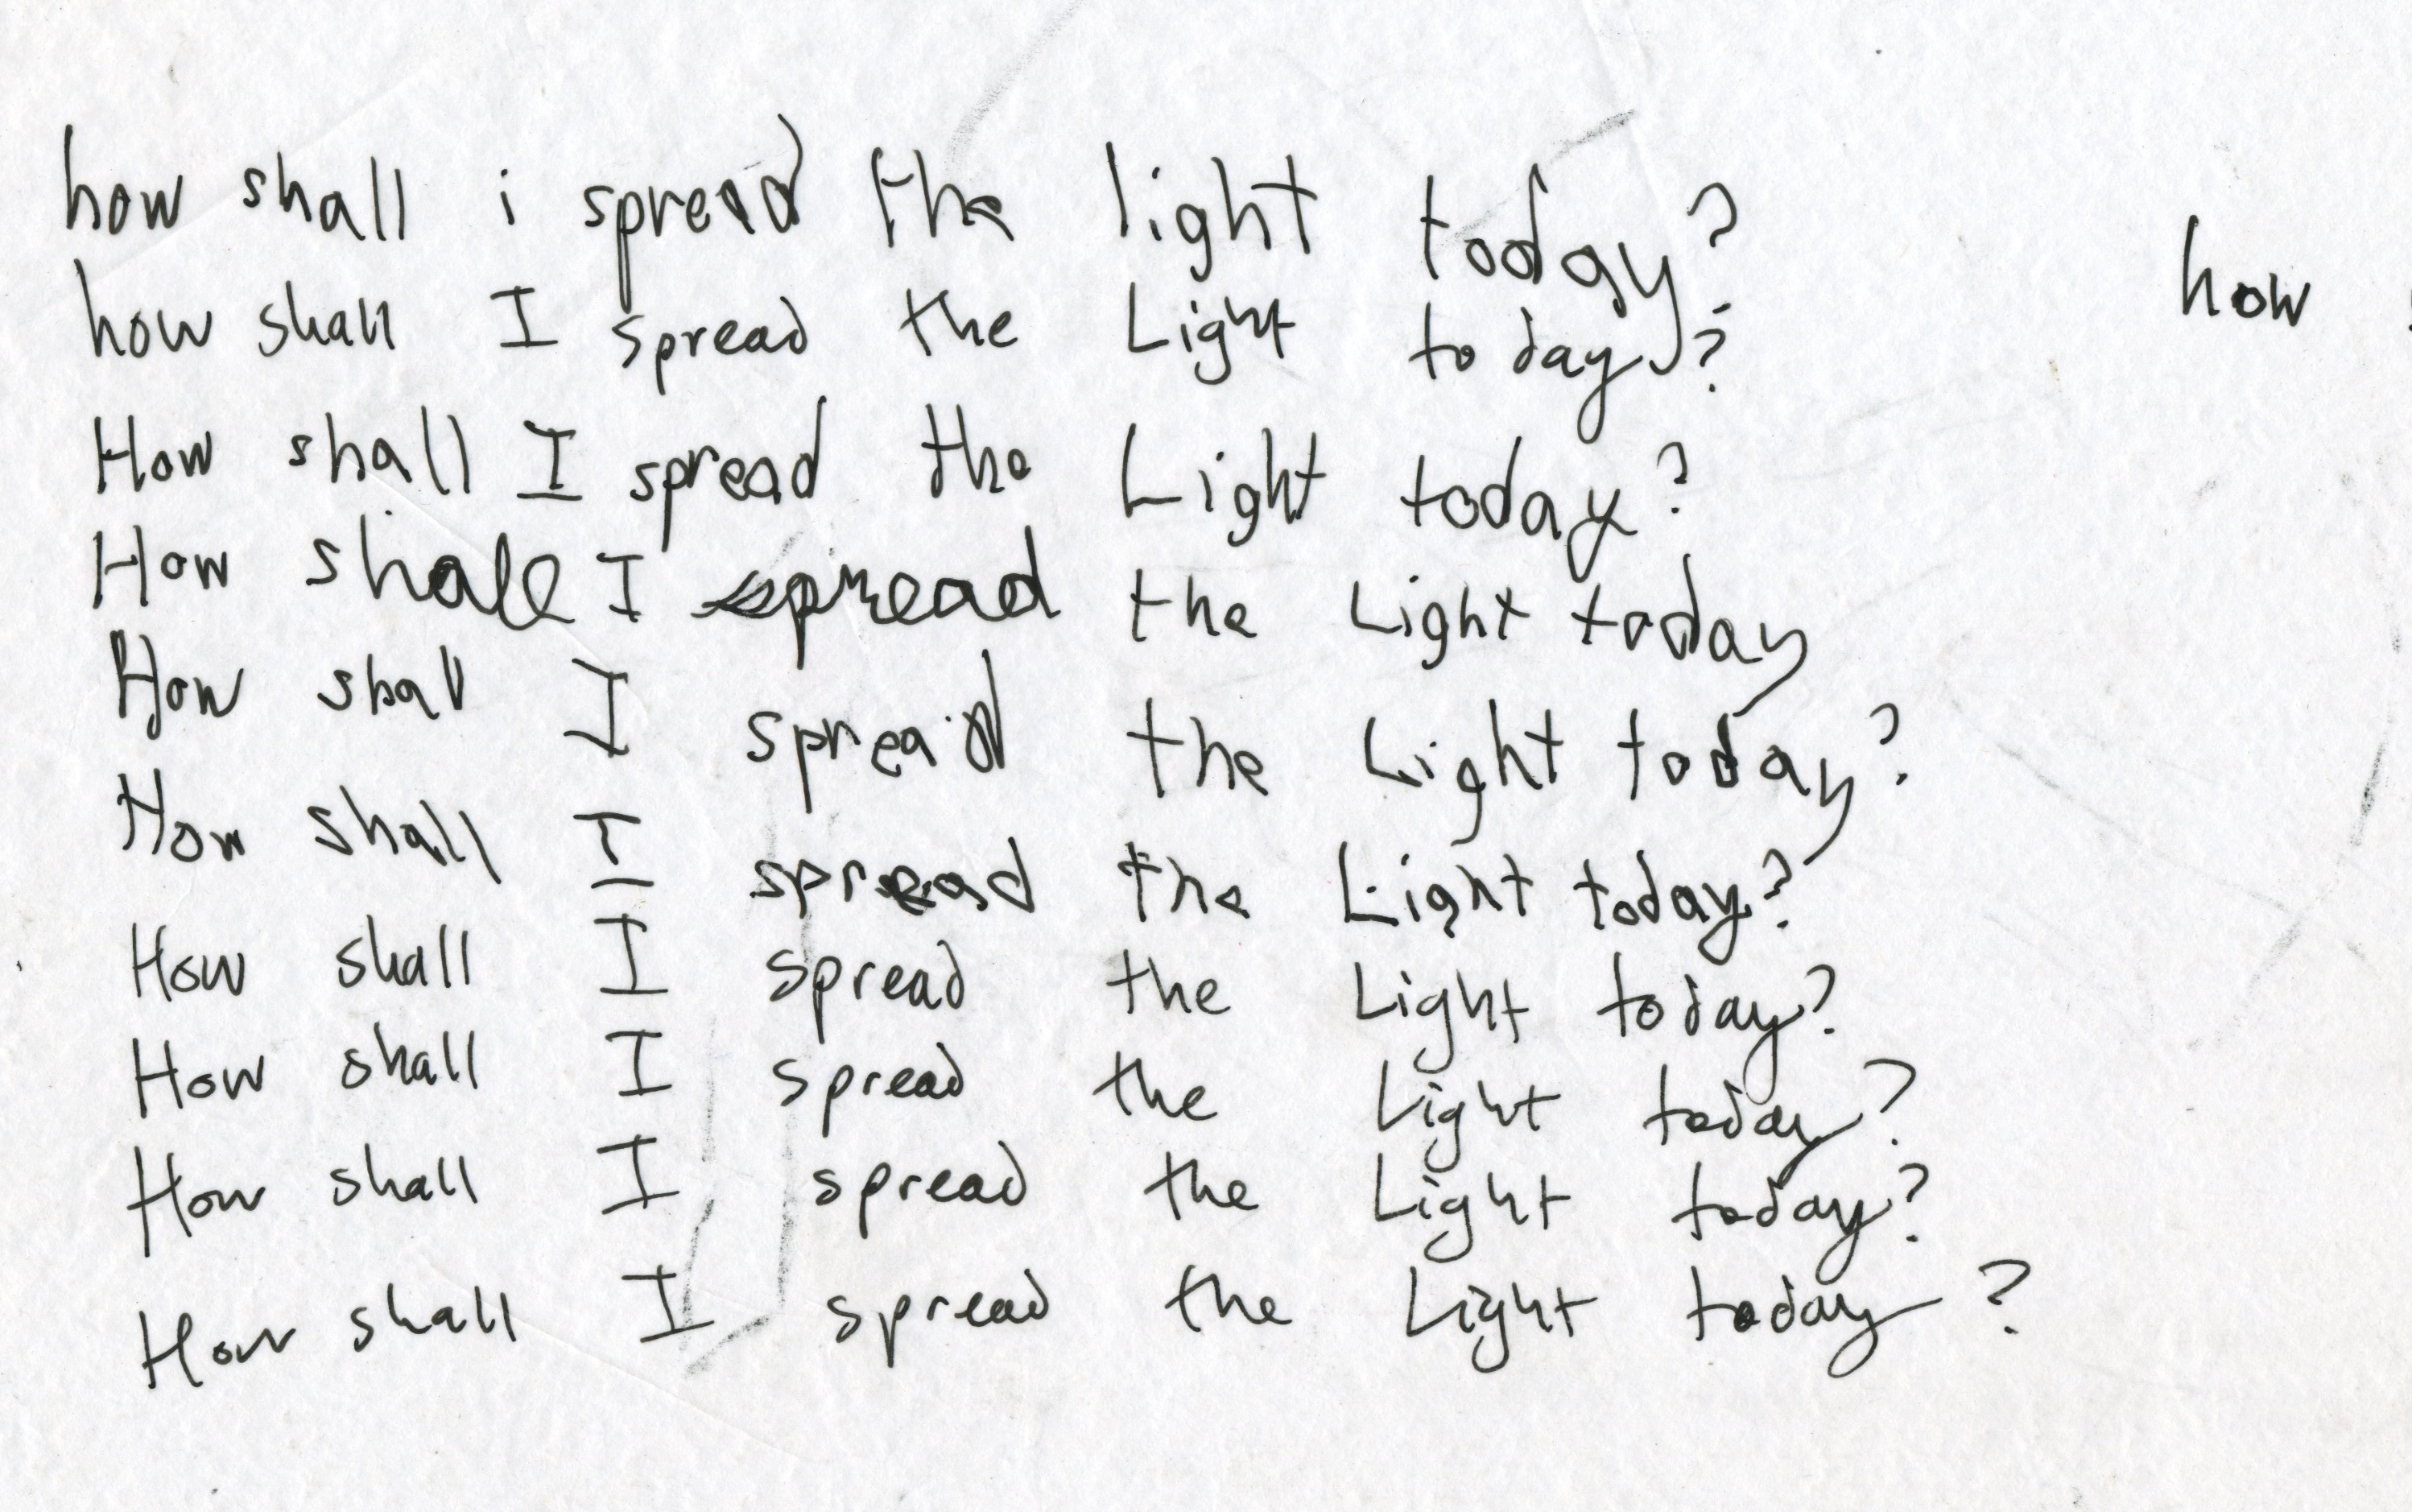 how shall i spread the light today?
how shall I spread the Light today?
How shall I spread the Light today?
How shall I spread the Light today
How shall I spread the Light today?
How shall I spread the Light today?
How shall I spread the Light today?
How shall I spread the Light today?
How shall I spread the Light today?
How shall I spread the Light today?
how